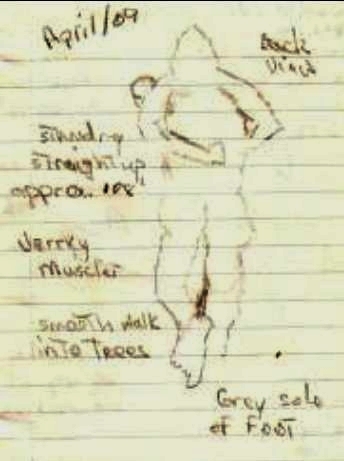 April/09
Back
View
standing
straight up
approx. 108"
Verrky
Muscler
smooth walk
into Trees
Grey sole
of Foot